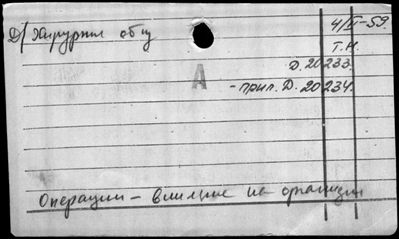 Д/ Хирургия общ
4/II-59.
Т.Н.
Д. 20233.
А
- прил. Д. 20234.
Операции - влияние на организм